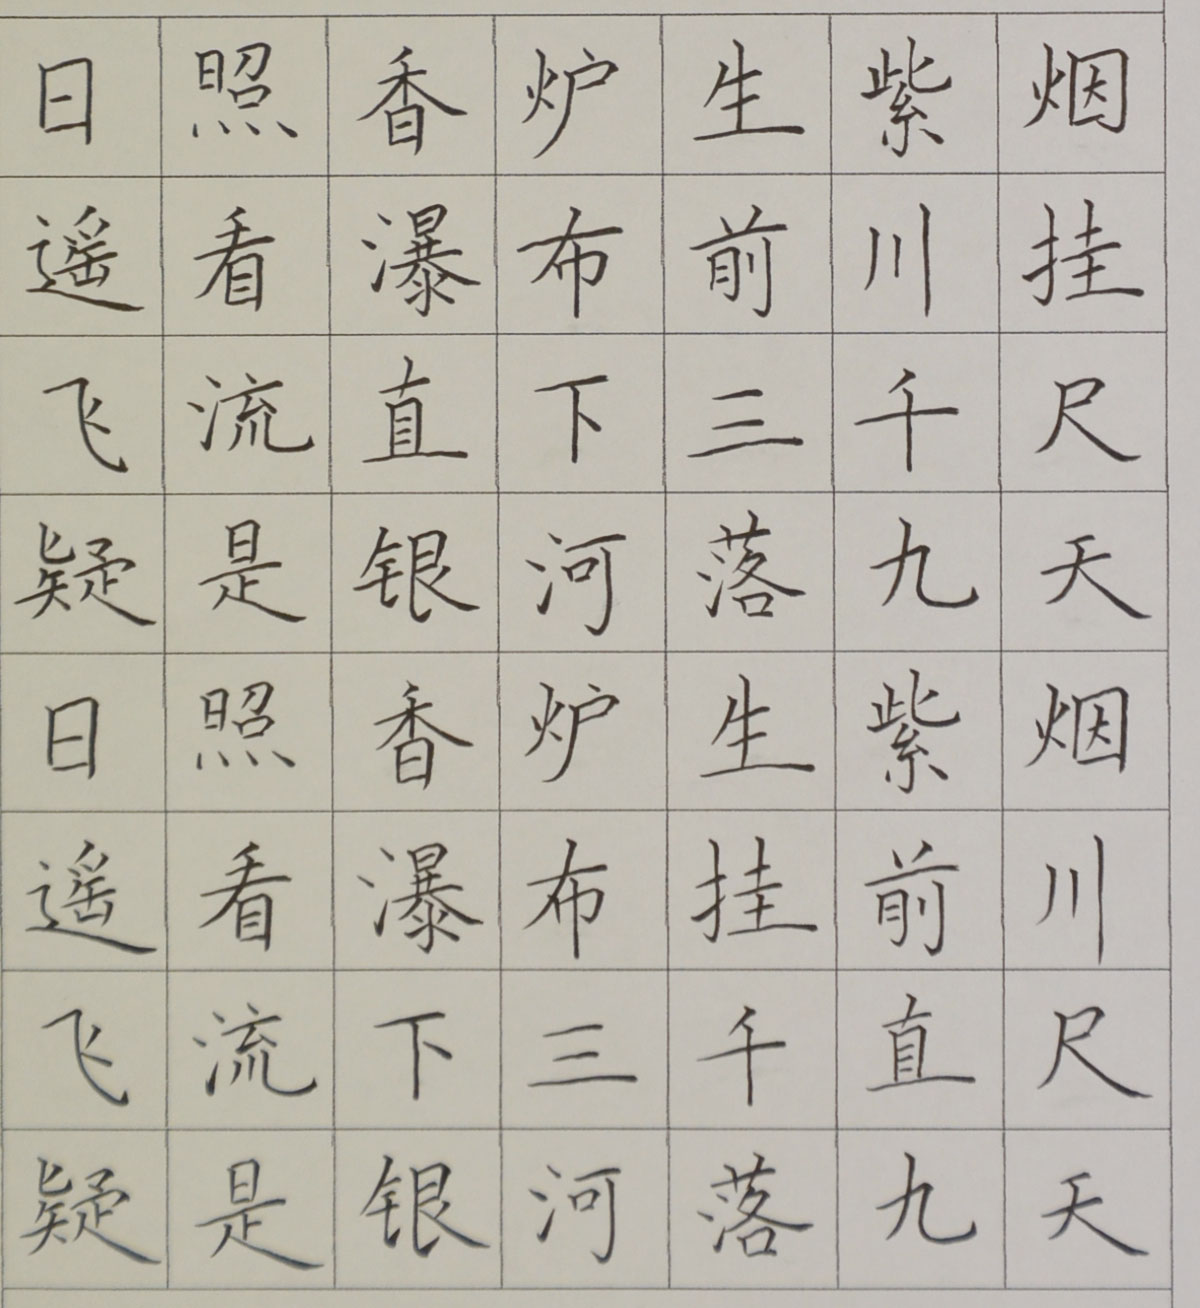 日照香炉生紫烟
遥看瀑布前川挂
飞流直下三千尺
疑是银河落九天
日照香炉生紫烟
遥看瀑布挂前川
飞流下三千直尺
疑是银河落九天